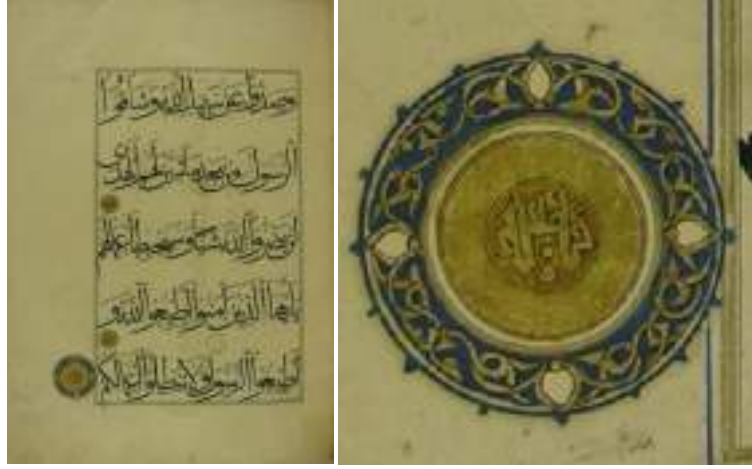 وصدوا عن سبيل الله وشاقوا
الرسول من بعد ما تبين لهم الهدى
لن يضروا الله شيئا وسيحبط اعمالهم
يايها الذين امنوا اطيعوا الله و
اطيعوا الرسول ولا تبطلوا اعمالكم